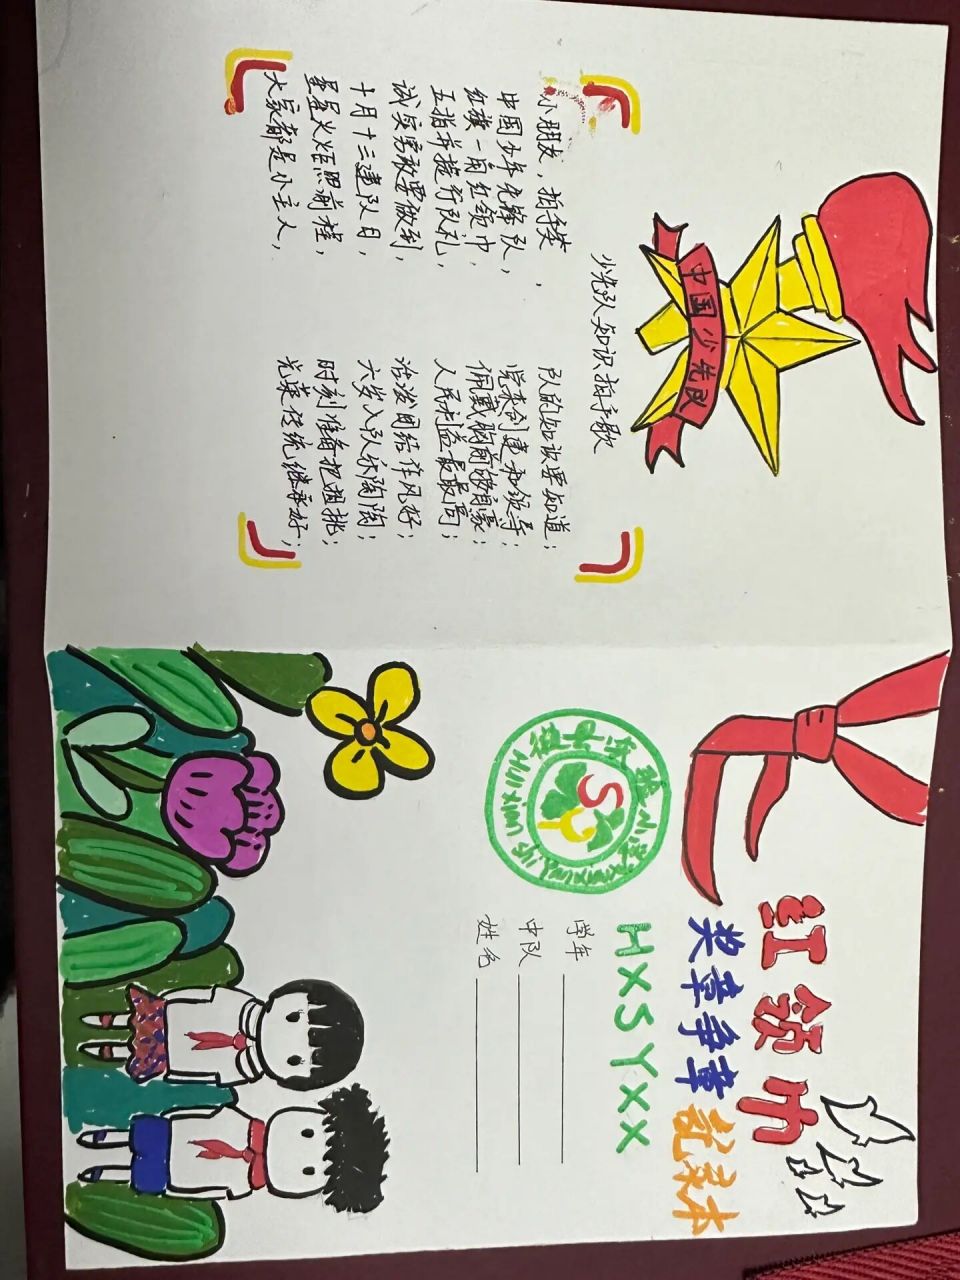 中国少先队
少先队知识拍手歌
小朋友，拍手笑，队的知识要知道；
中国少年先锋队，党来创建和领导；
红旗一角红领巾，佩戴胸前够自豪；
五指并拢行队礼，人民利益最最高；
诚实勇敢要做到，活泼团结作风好；
十月十三建队日，六岁入队乐陶陶；
星星火炬照前程，时刻准备把担挑；
大家都是小主人，光荣传统继承好；
红领巾
奖章争章记录本
HXSYXX
学年
中队
姓名